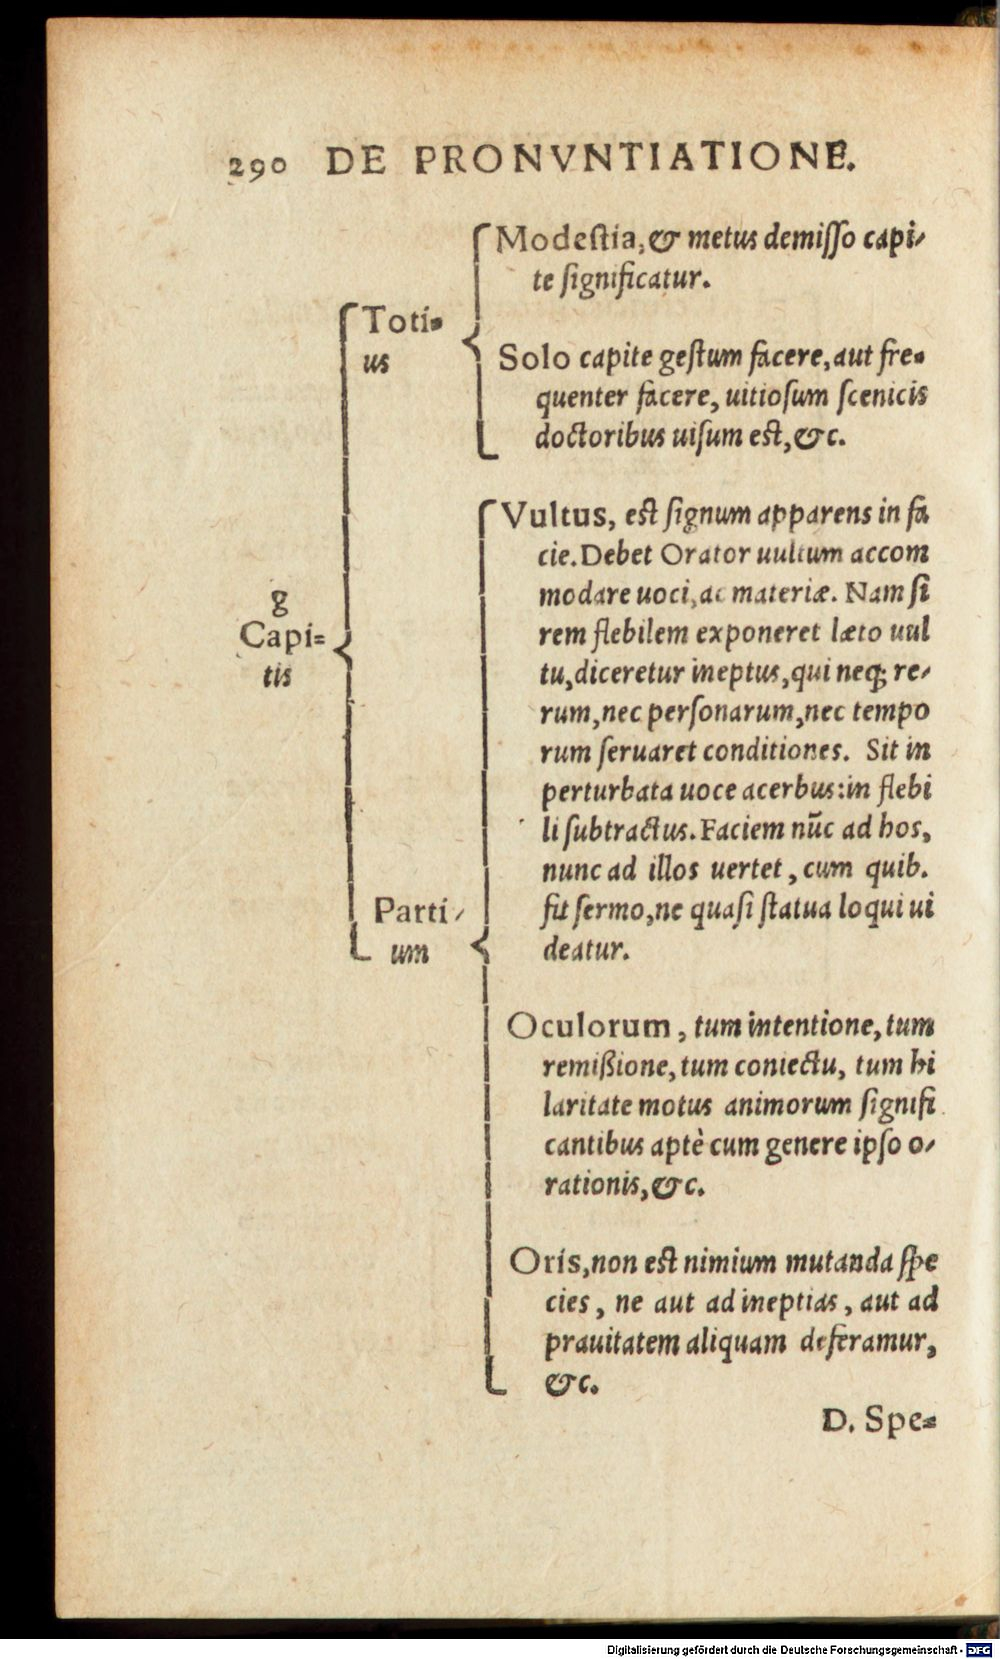 290 DE PRONVNTIATIONE.
g
Capi=
tis
Toti=
us
Modeſtia, & metus demiſſo capi-
te ſignificatur.
Solo capite geſtum facere, aut fre-
quenter facere, uitioſum ſcenicis
doctoribus uiſum eſt, &c.
Parti-
um
Vultus, eſt ſignum apparens in fa
cie. Debet Orator uultum accom
modare uoci, ac materiæ. Nam ſi
rem flebilem exponeret læto uul
tu, diceretur ineptus, qui neq; re-
rum, nec perſonarum, nec tempo
rum ſeruaret conditiones. Sit in
perturbata uoce acerbus: in flebi
li ſubtractus. Faciem nūc ad hos,
nunc ad illos uertet, cum quib.
fit ſermo, ne quaſi ſtatua loqui ui
deatur.
Oculorum, tum intentione, tum
remißione, tum coniectu, tum hi
laritate motus animorum ſignifi
cantibus aptè cum genere ipſo o-
rationis, &c.
Oris, non eſt nimium mutanda ſpe
cies, ne aut ad ineptias, aut ad
prauitatem aliquam deferamur,
&c.
D. Spe=
Digitalisierung gefördert durch die Deutsche Forschungsgemeinschaft - DFG